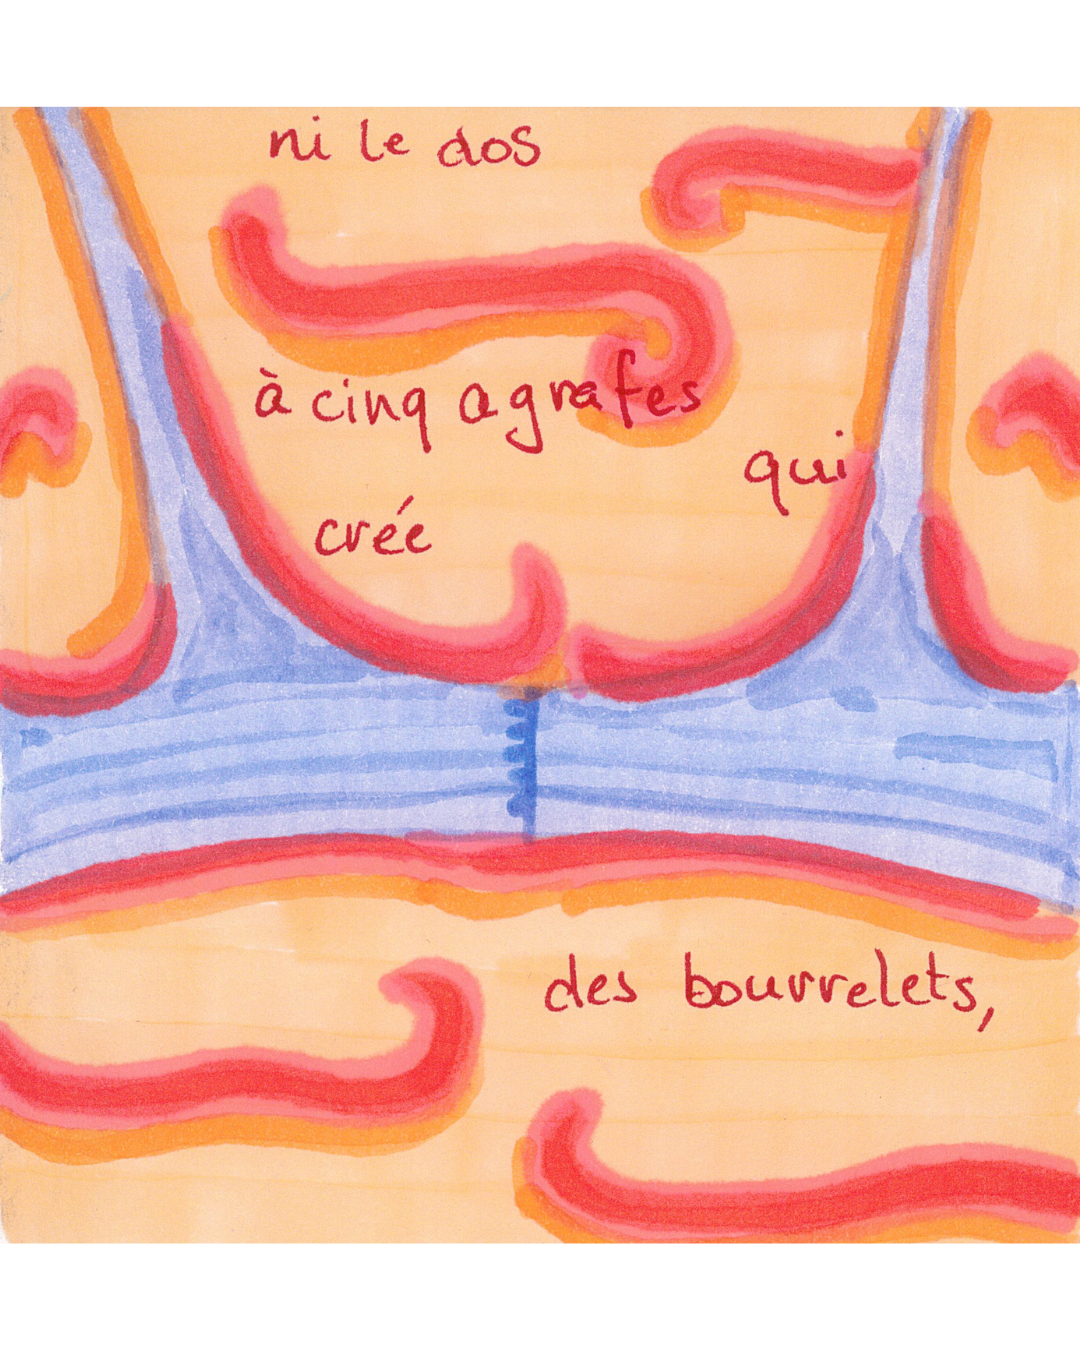 ni le dos
à cinq agrafes
qui
crée
des bourrelets,